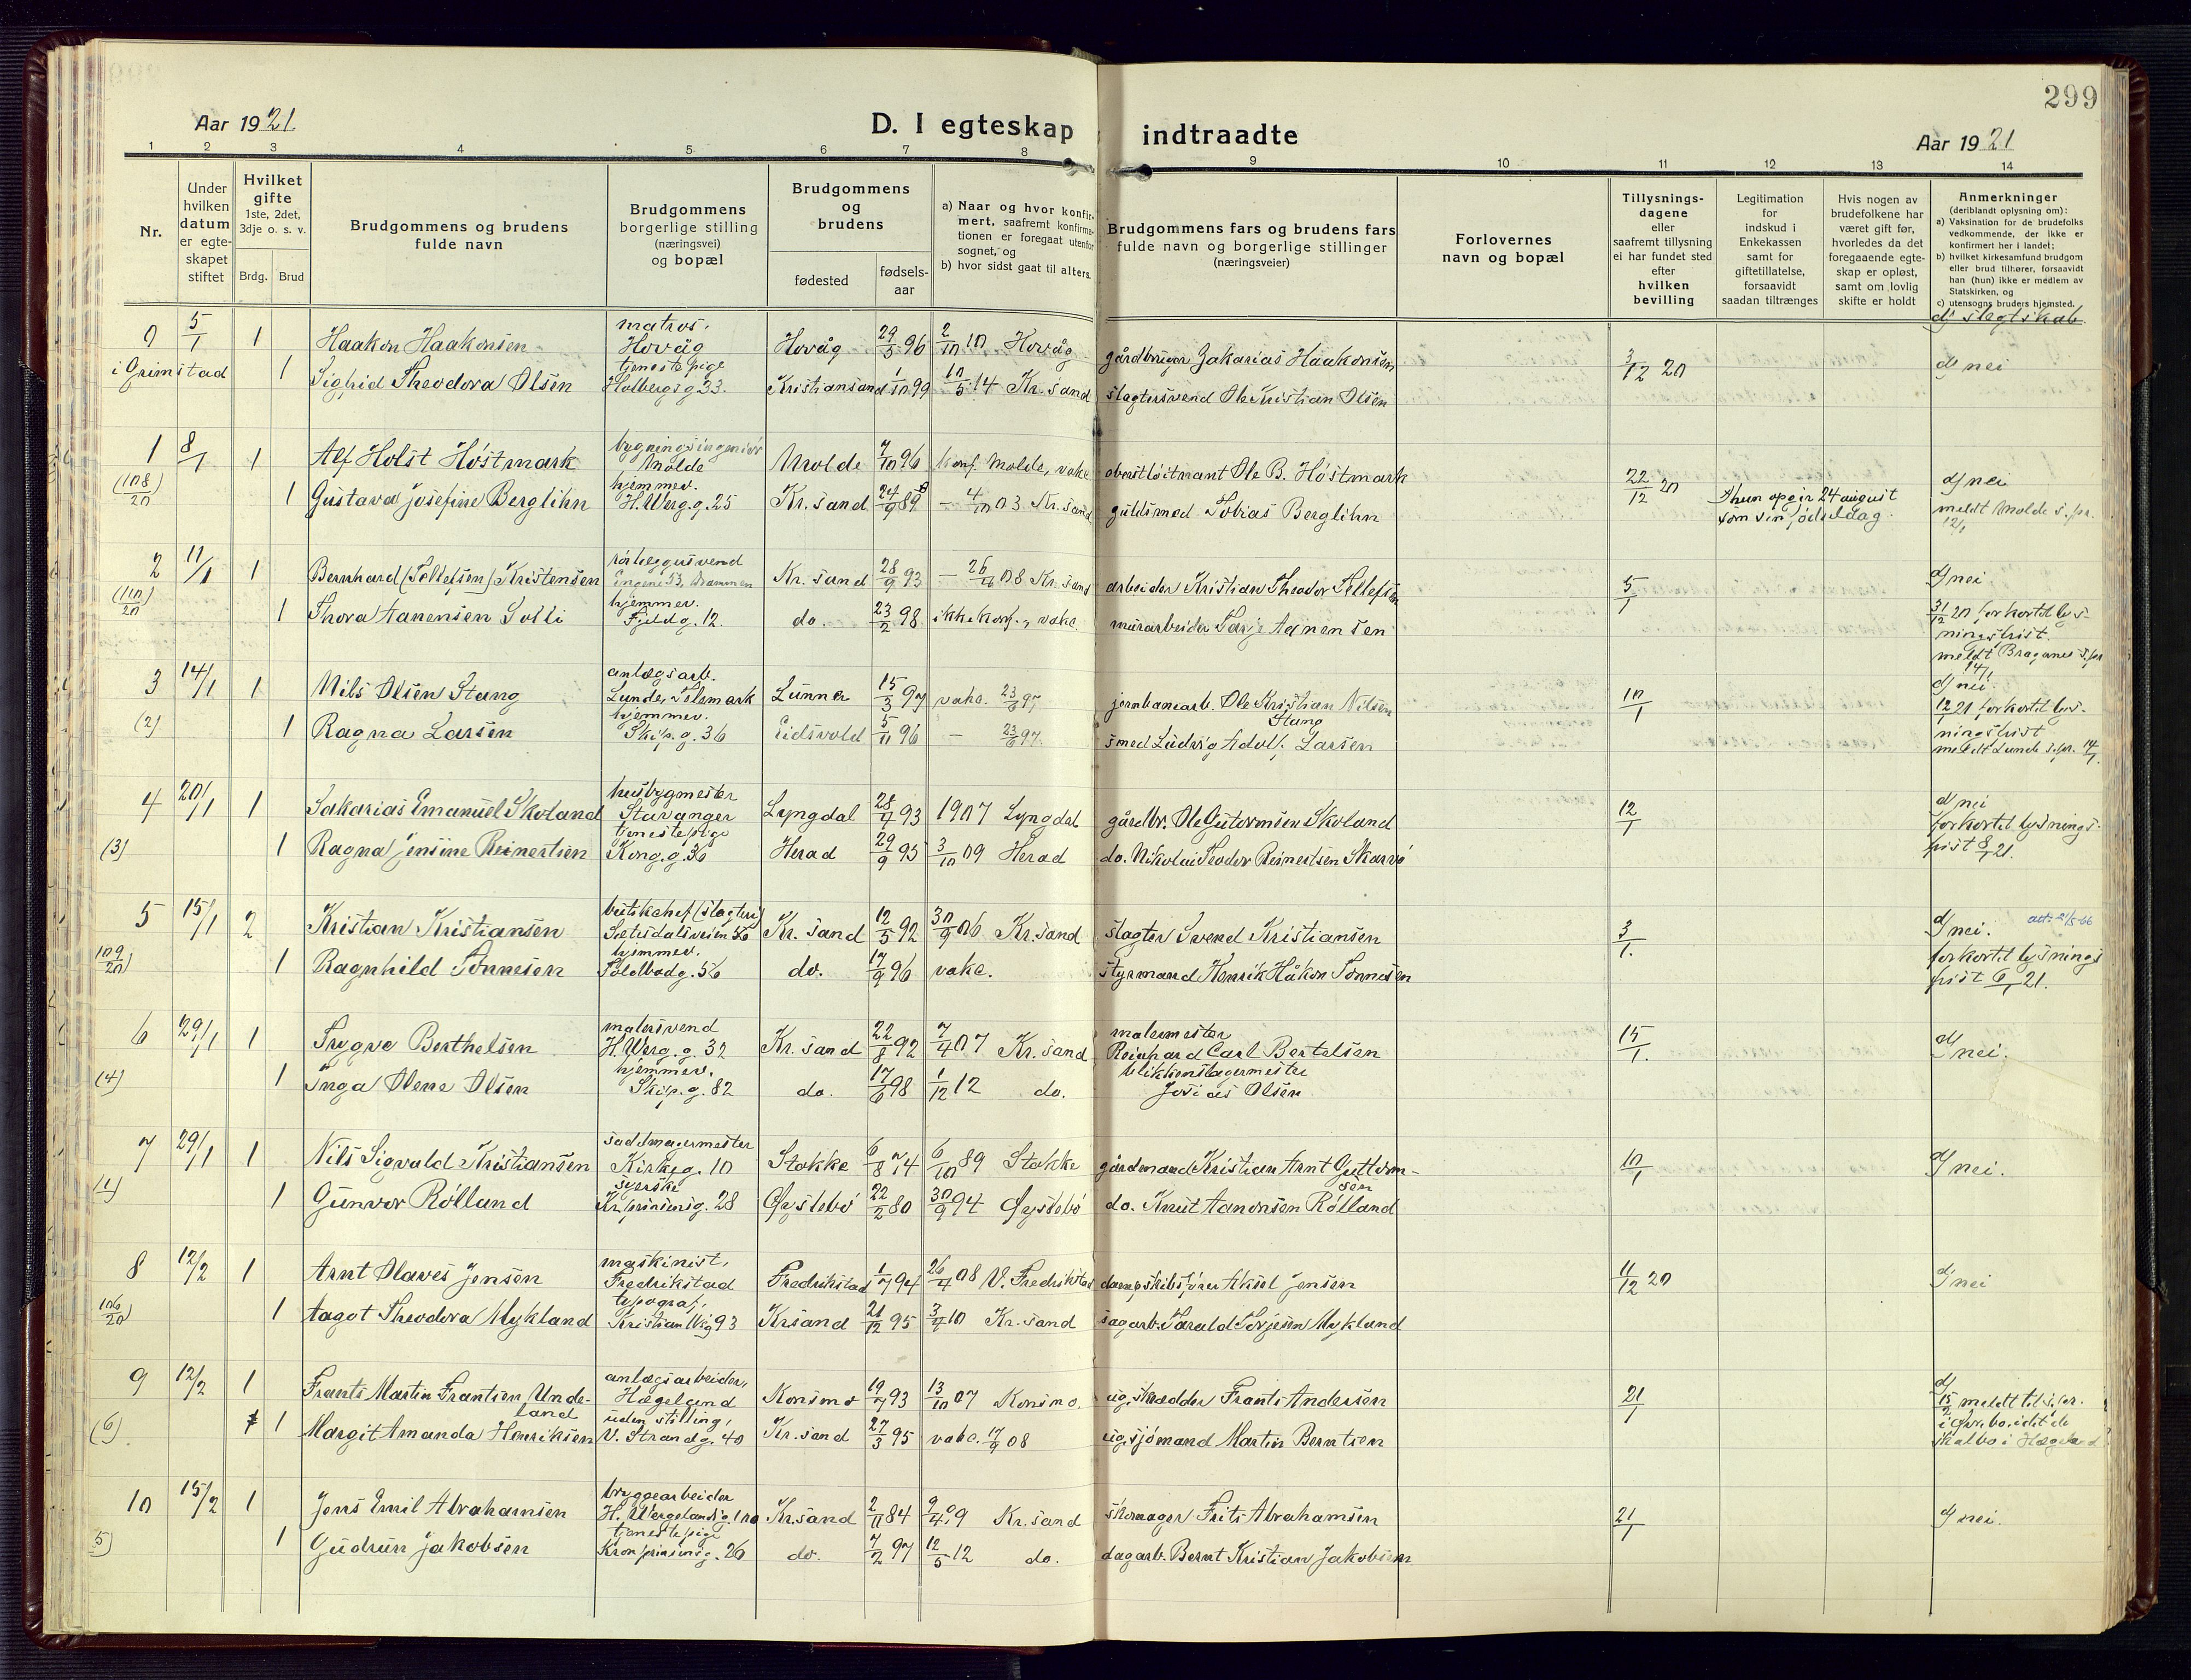 299
Aar 1921.
D. I egteskap indtraadte
Aar 1921
1 2 3 4 5 6 7 8 9 10 11 12 13 14
Nr.
Under hvilken datum er egteskapet stiftet
Hvilket gifte
1ste, 2det, 3dje o. s. v.
Brdg. Brud
Brudgommens og brudens fulde navn
Brudgommens borgerlige stilling (næringsvei) og bopæl
Brudgommens og brudens
fødested
fødsels-aar
a) Naar og hvor konfirmert, saafremt konfirmationen er foregaat utenfor sognet, og
b) hvor sidst gaat til alters.
Brudgommens fars og brudens fars fulde navn og borgerlige stillinger (næringsveier)
Forlovernes navn og bopæl
Tillysningsdagene eller saafremt tillysning ei har fundet sted efter hvilken bevilling
Legitimation for indskud i Enkekassen samt for giftetillatelse, forsaavidt saadan tiltrænges
Hvis nogen av brudefolkene har været gift før, hvorledes da det foregaaende egteskap er opløst, samt om lovlig skifte er holdt
Anmerkninger
(deriblandt oplysning om):
a) Vaksination for de brudefolks vedkommende, der ikke er konfirmert her i landet;
b) hvilket kirkesamfund brudgom eller brud tilhører, forsaavidt han (hun) ikke er medlem av Statskirken, og
c) utensogns bruders hjemsted.
d) slegtskab.
0 5/1 1 Haakon Haakonsen matros, Hovåg Hovåg 29/5 96 2/10 10 Hovåg gårdbruger Zakarias Haakonsen 3/12 20 d) nei
i Grimstad 1 Sigfrid Theodora Olsen tjenestepige Holbergsg. 23. Kristiansand 1/10 99 10/5 14 Kr. sand slagtersvend Ole Kristian Olsen
1 8/1 1 Alf Holst Høstmark bygningsingeniør Molde Molde 7/10 96 konf. Molde, vakc oberstløitnant Ole B. Høstmark 22/12 20 d) nei
(108/20) 1 Gustava Josefine Berglihn hjemmev. H. Werg. g. 25 Kr. sand 24/9 89 – 4/10 03 Kr. sand guldsmed Tobias Berglihn hun opgir 24 august som sin fødselsdag. meldt Molde s. pr. 12/1
2 11/1 1 Bernhard (Tellefsen) Kristensen rørlæggersvend Engene 53, Drammen Kr. sand 28/9 93 – 26/4 08 Kr. sand arbeider Kristian Theodor Tellefsen 5/1 d) nei.
(110/20) 1 Thora Aanensen Solli hjemmev. Fjeldg. 12. do. 23/2 98 ikke konf., vakc. murarbeider Tarje Aanensen 31/12 20 forkortet lysningsfrist. meldt Bragenes s. pr 14/1
3 14/1 1 Nils Olsen Stang anlægsarb. Lunde, Telemark Lunner 15/3 97 vakc. 23/6 97 jernbanearb. Ole Kristian Nilsen Stang 10/1 d) nei.
(2) 1 Ragna Larsen hjemmev. Skip. g. 36 Eidsvold 5/11 96 – 23/6 97. smed Ludvig Adolf Larsen 12/1 21 forkortet lysningsfrist meldt Lunde s. pr. 14/1
4 20/1 1 Sakarias Emanuel Skoland husbygmester Stavanger Lyngdal 28/7 93 1907 Lyngdal gårdbr. Ole Gutormsen Skoland 12/1 d) nei
(3) 1 Ragna Jensine Reinertsen tjenestepige Kong. g. 36 Herad 29/9 95 3/10 09 Herad do. Nikolai Teodor Reinertsen Skarvø forkortet lysningsfrist 8/1 21.
5 15/1 2 Kristian Kristiansen butikchef (slagteri) Sætesdalsveien 56 Kr. sand 12/5 92 30/9 06 Kr. sand slagter Svend Kristiansen 3/1. d) nei.
(109/20) 1 Ragnhild Tønnesen hjemmev. Toldbodg. 56 do. 17/9 96 vakc. styrmand Henrik Håkon Tønnesen forkortet lysningsfrist 6/1 21.
6 29/1 1 Trygve Berthelsen malersvend H. Werg. g. 32 Kr. sand 22/8 92 7/4 07 Kr. sand malermester Reinhard Carl Bertelsen 15/1. d) nei.
(4) 1 Inga Olene Olsen hjemmev. Skip. g. 82 do. 17/6 98 1/12 12 do. blikkenslagermester Josias Olsen
7 29/1 1 Nils Sigvald Kristiansen sadelmagermester Kirkeg. 10 Stokke 6/8 74 6/10 89 Stokke gårdmand Kristian Arnt Guttormsen 10/1 d) nei.
(1) 1 Gunvor Rølland syerske Kr. prinsensg. 28 Øystebø 22/2 80 30/9 94 Øystebø do. Knut Aanensen Rølland
8 12/2 1 Arnt Olaves Jensen maskinist, Fredrikstad Fredrikstad 1/7 94 26/4 08 V. Fredrikstad dampskibsfører Aksel Jensen 11/12 20 d) nei
(106/20) 1 Aagot Theodora Mykland typograf, Kristian IVsg 93 Krsand 21/12 95 3/4 10 Kr. sand sagarb. Tarald Torjesen Mykland
9 12/2 1 Frants Martin Frantsen Undeland anlægsarbeider, Hægeland Konsmo 19/7 93 13/10 07 Konsmo. eig. skrædder Frants Andersen 21/1 d)
(6). 1 Margit Amanda Henriksen uden stilling, V. Strandg. 40 Kr. sand 27/3 95 vakc. 17/9 08 eig. sjømand Martin Berntsen 15/2 meldt til s. pr. i Øvrebø, idet de skal bo i Hægeland
10 15/2 1 Jens Emil Abrahamsen bryggearbeider H. Wergelandsg. 100 Kr. sand 2/11 84 9/4 9 Kr. sand skomager Frits Abrahamsen 21/1 d) nei.
5) 1 Gudrun Jakobsen tjenestepige Kronprinsensg. 26 do. 7/2 97 12/5 12 do. dagarb. Bernt Kristian Jakobsen